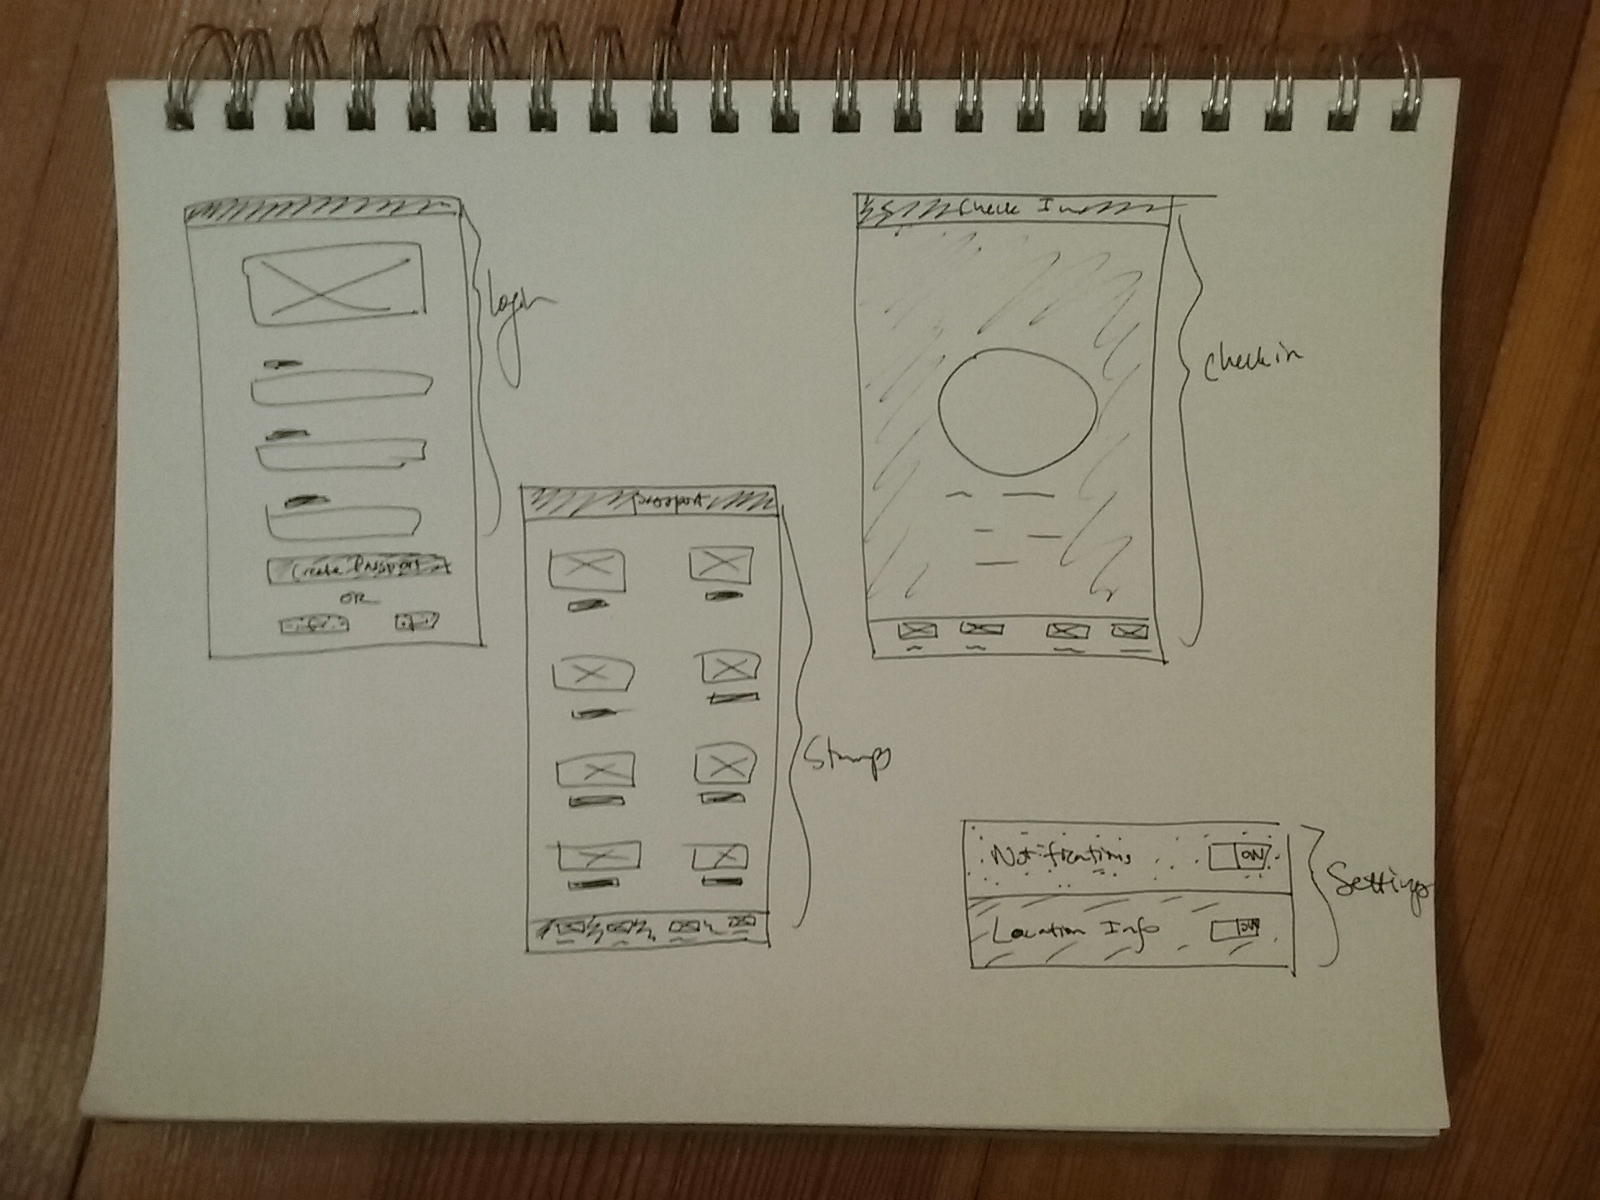 Login
Create Passport
OR
Passport
Stamps
Check In
Check in
Notifications ON
Location Info ON
Settings